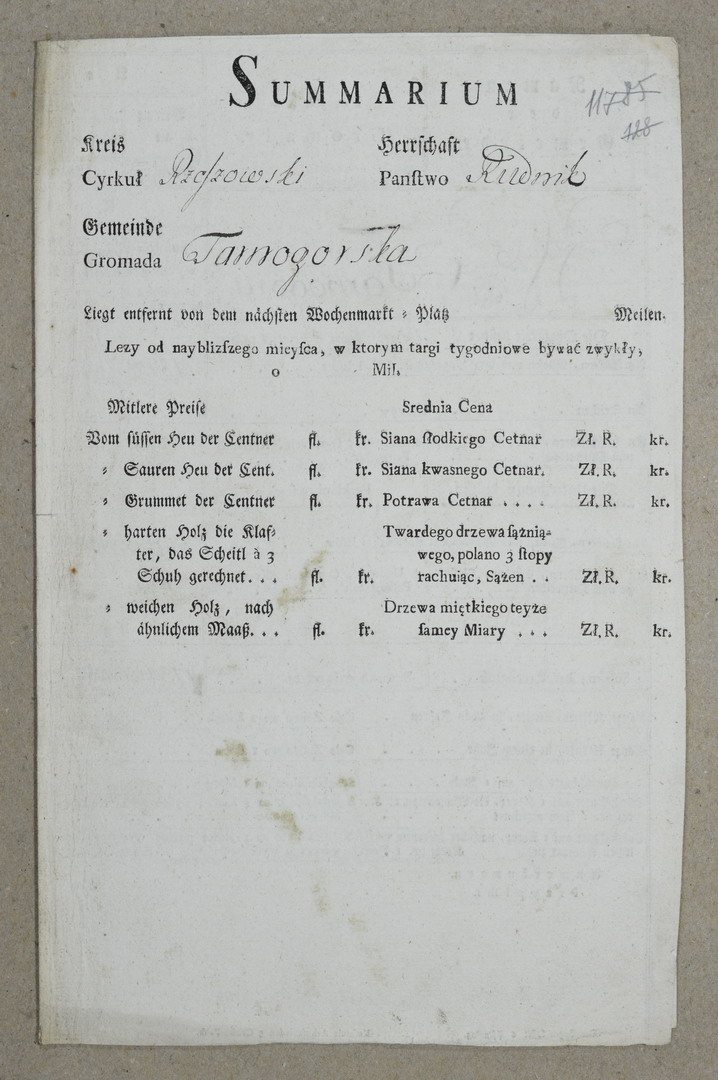 SUMMARIUM
11785
128
Kreis Herrſchaft
Cyrkuł Rzeszowski Panſtwo Rudnik
Gemeinde
Gromada Tarnogorska
Liegt entfernt von dem nächſten Wochenmarkt ⸗ Platz Meilen.
Lezy od naybliżſzego mieyſca, w ktorym targi tygodniowe bywać zwykły,
o Mil.
Mitlere Preiſe Srednia Cena
Vom ſüſſen Heu der Centner fl. kr. Siana ſłodkiego Cetnar Zł. R. kr.
⸗ Sauren Heu der Cent. fl. kr. Siana kwasnego Cetnar. Zł. R. kr.
⸗ Grummet der Centner fl. kr. Potrawa Cetnar . . . . Zł. R. kr.
⸗ harten Holz die Klaf⸗ Twardego drzewa ſążnią-
ter, das Scheitl à 3 wego, polano 3 ſtopy
Schuh gerechnet. . . fl. kr. rachuiąc, Sążen . . Zł. R. kr.
⸗ weichen Holz, nach Drzewa miętkiego teyże
ähnlichem Maaß. . . fl. kr. ſamey Miary . . . Zł. R. kr.